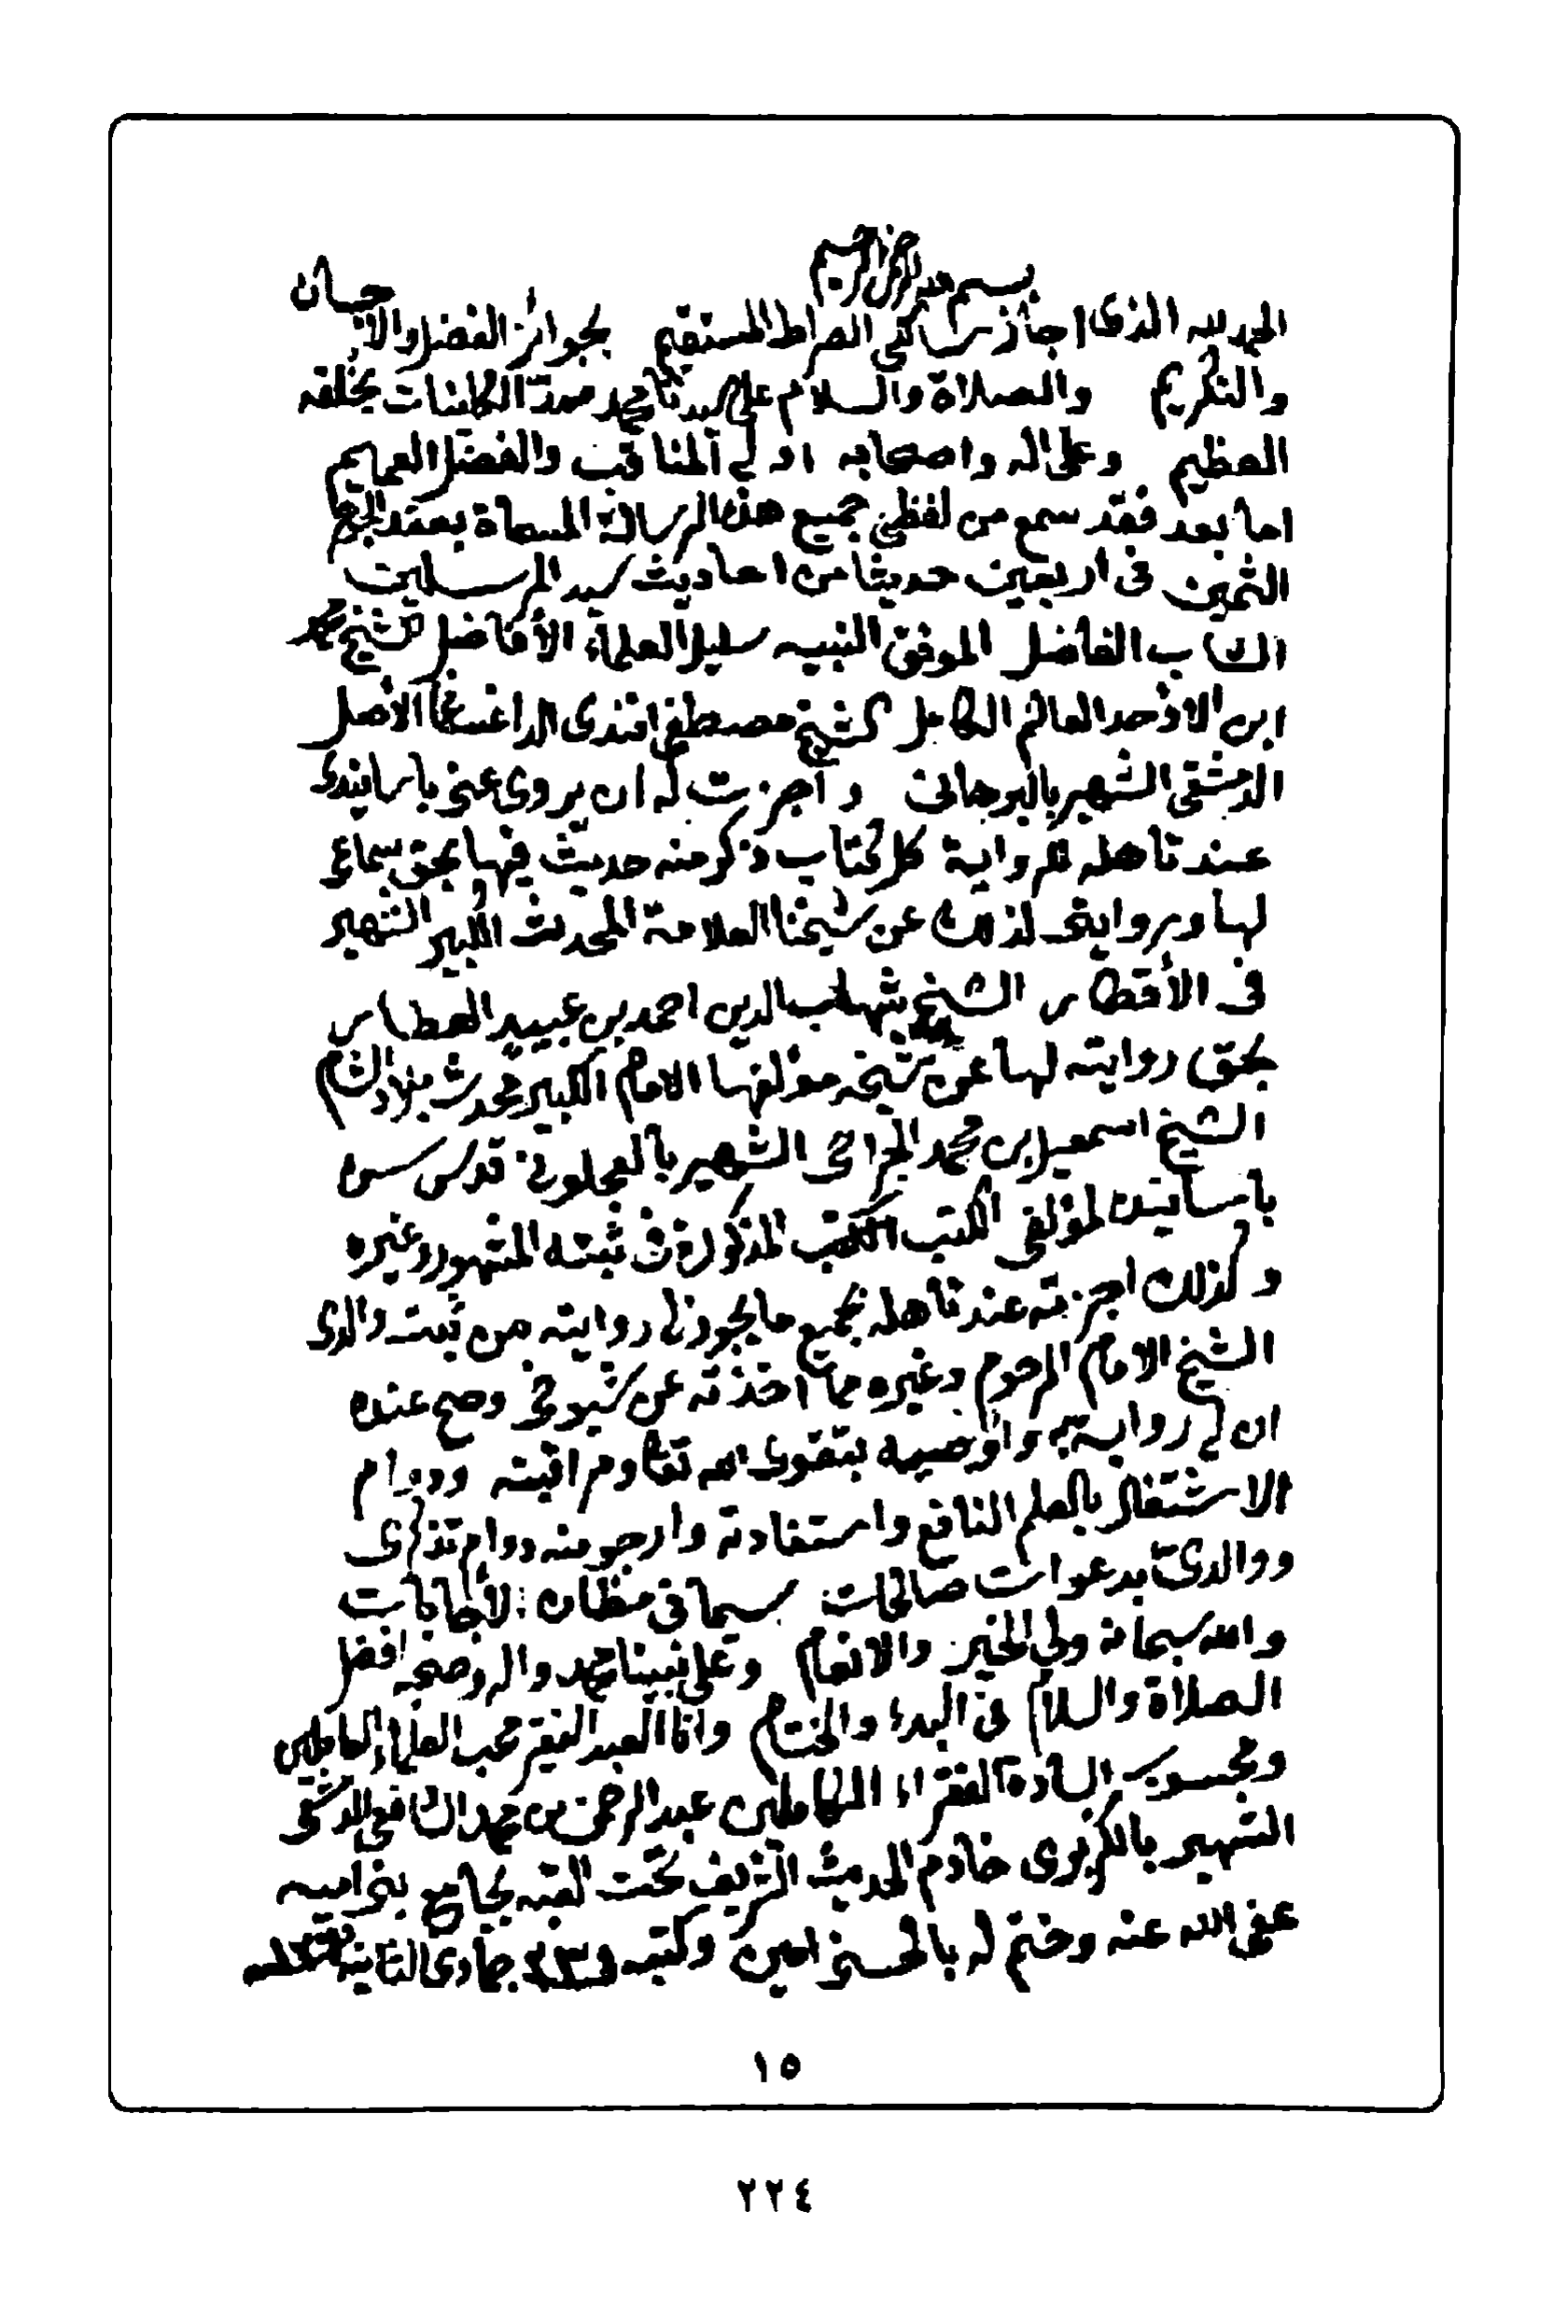 بسم الله الرحمن الرحيم
الحمد لله الذي اجاز سالكي الصراط المستقيم بجوائز الفضل والاحسان
والتكريم والصلاة والسلام على سيدنا محمد ممدّ الكائنات بخُلقه
العظيم وعلى اله واصحابه اولي المناقب والفضل العميم
اما بعد فقد سمع من لفظي جميع هذه الرسالة المسماة بعقد الجوهر
الثمين في اربعين حديثا من احاديث سيد المرسلين
الشاب الفاضل الموفق النبيه سليل العلماء الأفاضل الشيخ محمد
ابن الاوحد العالم الكامل الشيخ مصطفى افندي الداغستاني الاصل
الدمشقي الشهير بالبرهاني وأجزت له ان يروي عني باسانيدي
عند تاهله للرواية كل كتاب ذكر منه حديث فيها بحق سماعي
لها وروايتي لذلك عن شيخنا العلامة المحدث الكبير الشهير
في الأقطار الشيخ شهاب الدين احمد بن عبيد العطار
بحق روايته لها عن شيخه مؤلفها الامام الكبير محدث بلاد الشام
الشيخ اسمعيل بن محمد الجراحي الشهير بالعجلوني قدس سره
باسانيده لمؤلفي الكتب المذكورة في ثبته المشهور وغيره
وكذلك اجزته عند تاهله بجميع ما يجوز لي روايته من ثبت والدي
الشيخ الامام المرحوم وغيره مما اخذته عن شيوخي وصح عنده
ان لي روايته واوصيه بتقوى الله تعالى ومراقبته ودوام
الاشتغال بالعلم النافع واستفادته وارجو منه دوام تذكري
ووالدي بدعوات صالحات سيما في مظان الأجابات
والله سبحانه ولي الخير والانعام وعلى نبينا محمد واله وصحبه افضل
الصلاة والسلام في البدء والختام وانا العبد الفقير محب العلماء العاملين
ومحسوب السادة الفقراء الكاملين عبد الرحمن بن محمد الشافعي الدمشقي
الشهير بالكزبري خادم الحديث الشريف تحت القبه بجامع بني اميه
عفى الله عنه وختم له بالحسنى امين وكتبه في جمادى الثانية
١٥
٢٢٤